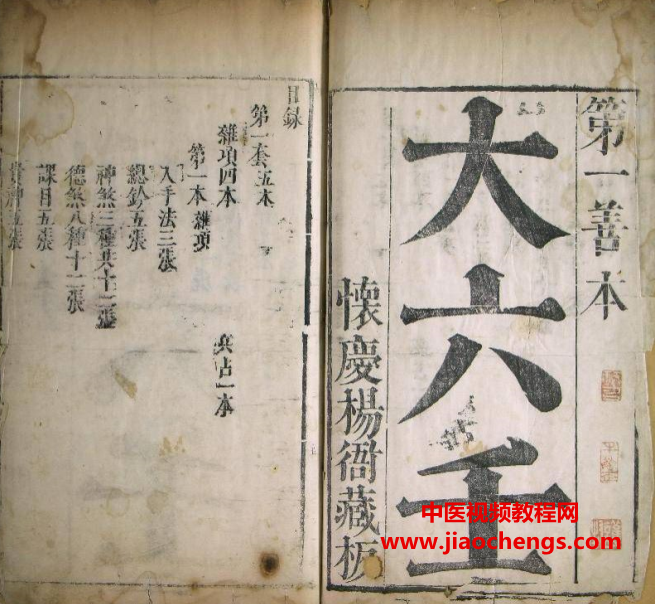 第一善本
大六壬
懷慶楊衙藏板
目録
第一套五本
雜項四本
兵占一本
第一本 雜項
入手法三張
總鈐五張
神煞三種共十二張
德煞八種十二張
課目五張
貴神五張
中医视频教程网
www.jiaochengs.com